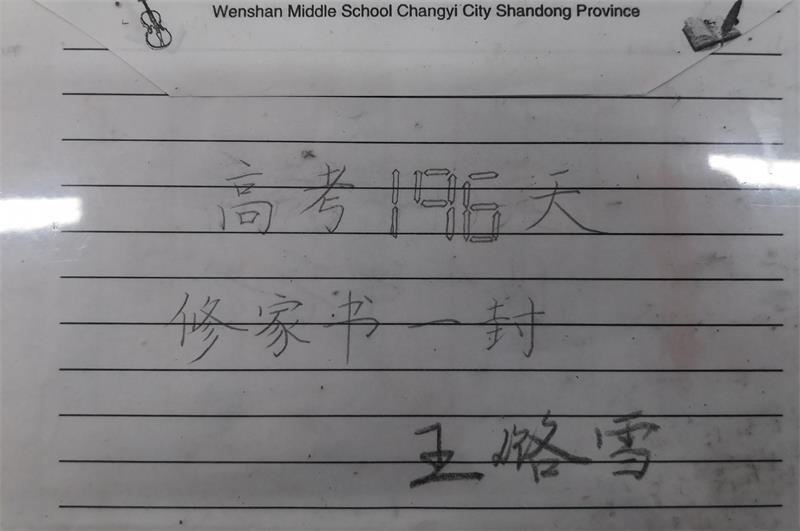 Wenshan Middle School Changyi City Shandong Province
高考196天
修家书一封
王璐雪